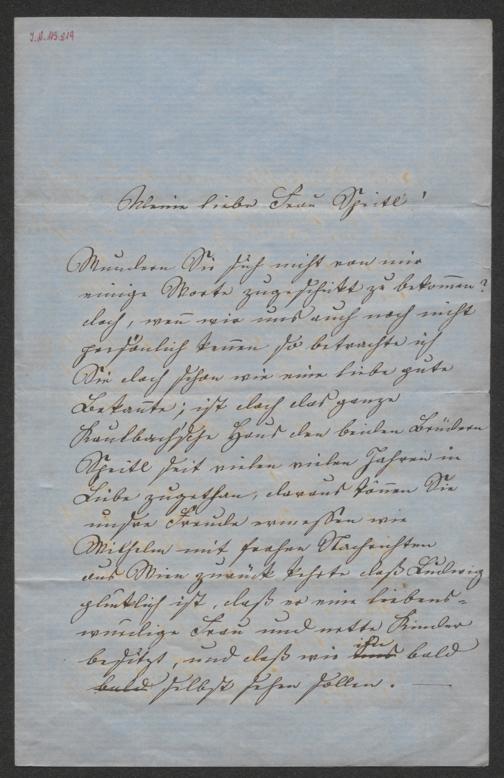 I.N. 115.219
Meine liebe Frau Speitl!
Wundern Sie sich nicht von mir
einige Worte zugeschickt zu bekom̅en?
doch, wen̅ wir uns auch noch nicht
persönlich ken̅en so betrachte ich
Sie doch schon wie eine liebe gute
Bekante; ist doch das ganze
Kaulbachsche Haus den beiden Brüdern
Speitl seit vielen vielen Jahren in
Liebe zugethan, daraus kön̅en Sie
unsre Freude ermessen wie
Wilhelm mit frohen Nachrichten
aus Wien zurück kehrte daß Ludwig
glücklich ist, daß er eine liebens-
würdige Frau und nette Kinder
besitzt, und daß wir sie bald
bald selbst sehen sollen. —